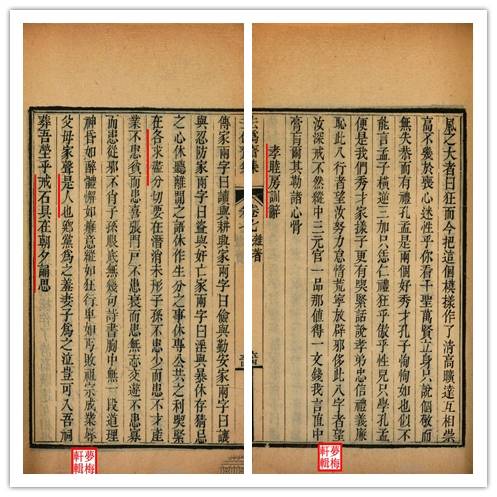 風之大者曰狂而今把這個模樣作了清高曠達互相崇
高不幾於喪心迷性乎你看千聖萬賢立身只說個敬而
無失恭而有禮孔孟是兩個好秀才孔子恂恂如也似不
能言孟子橫逆三加只恁仁禮狂乎傲乎性兄只學孔孟
便是我們秀才家樣子更有喫緊話說孝弟忠信禮義廉
恥此八行者望汝努力怠惰荒寧放辟邪侈此八字者望
汝深戒不然縱中三元官一品那值得一文錢我言直中
膏肓爾其勒諸心骨
孝睦房訓辭
卷七 雜著
傳家兩字曰讀與耕興家兩字曰儉與勤安家兩字曰讓
與忍防家兩字曰盜與奸亡家兩字曰淫與暴休存猜忌
之心休聽離間之語休作生分之事休專公共之利喫緊
在各求盡分切要在潛消未形子孫不患少而患不才產
業不患貧而患喜張門戶不患衰而患無志交遊不患寡
而患從邪不肖子孫眼底無幾句詩書胸中無一段道理
神昏如醉體懈如癱意縱如狂行卑如丐敗祖宗成業辱
父母家聲是人也鄉黨為之羞妻子為之泣豈可入吾祠
葬吾塋乎戒石具在朝夕誦思
夢梅軒輯
夢梅軒輯